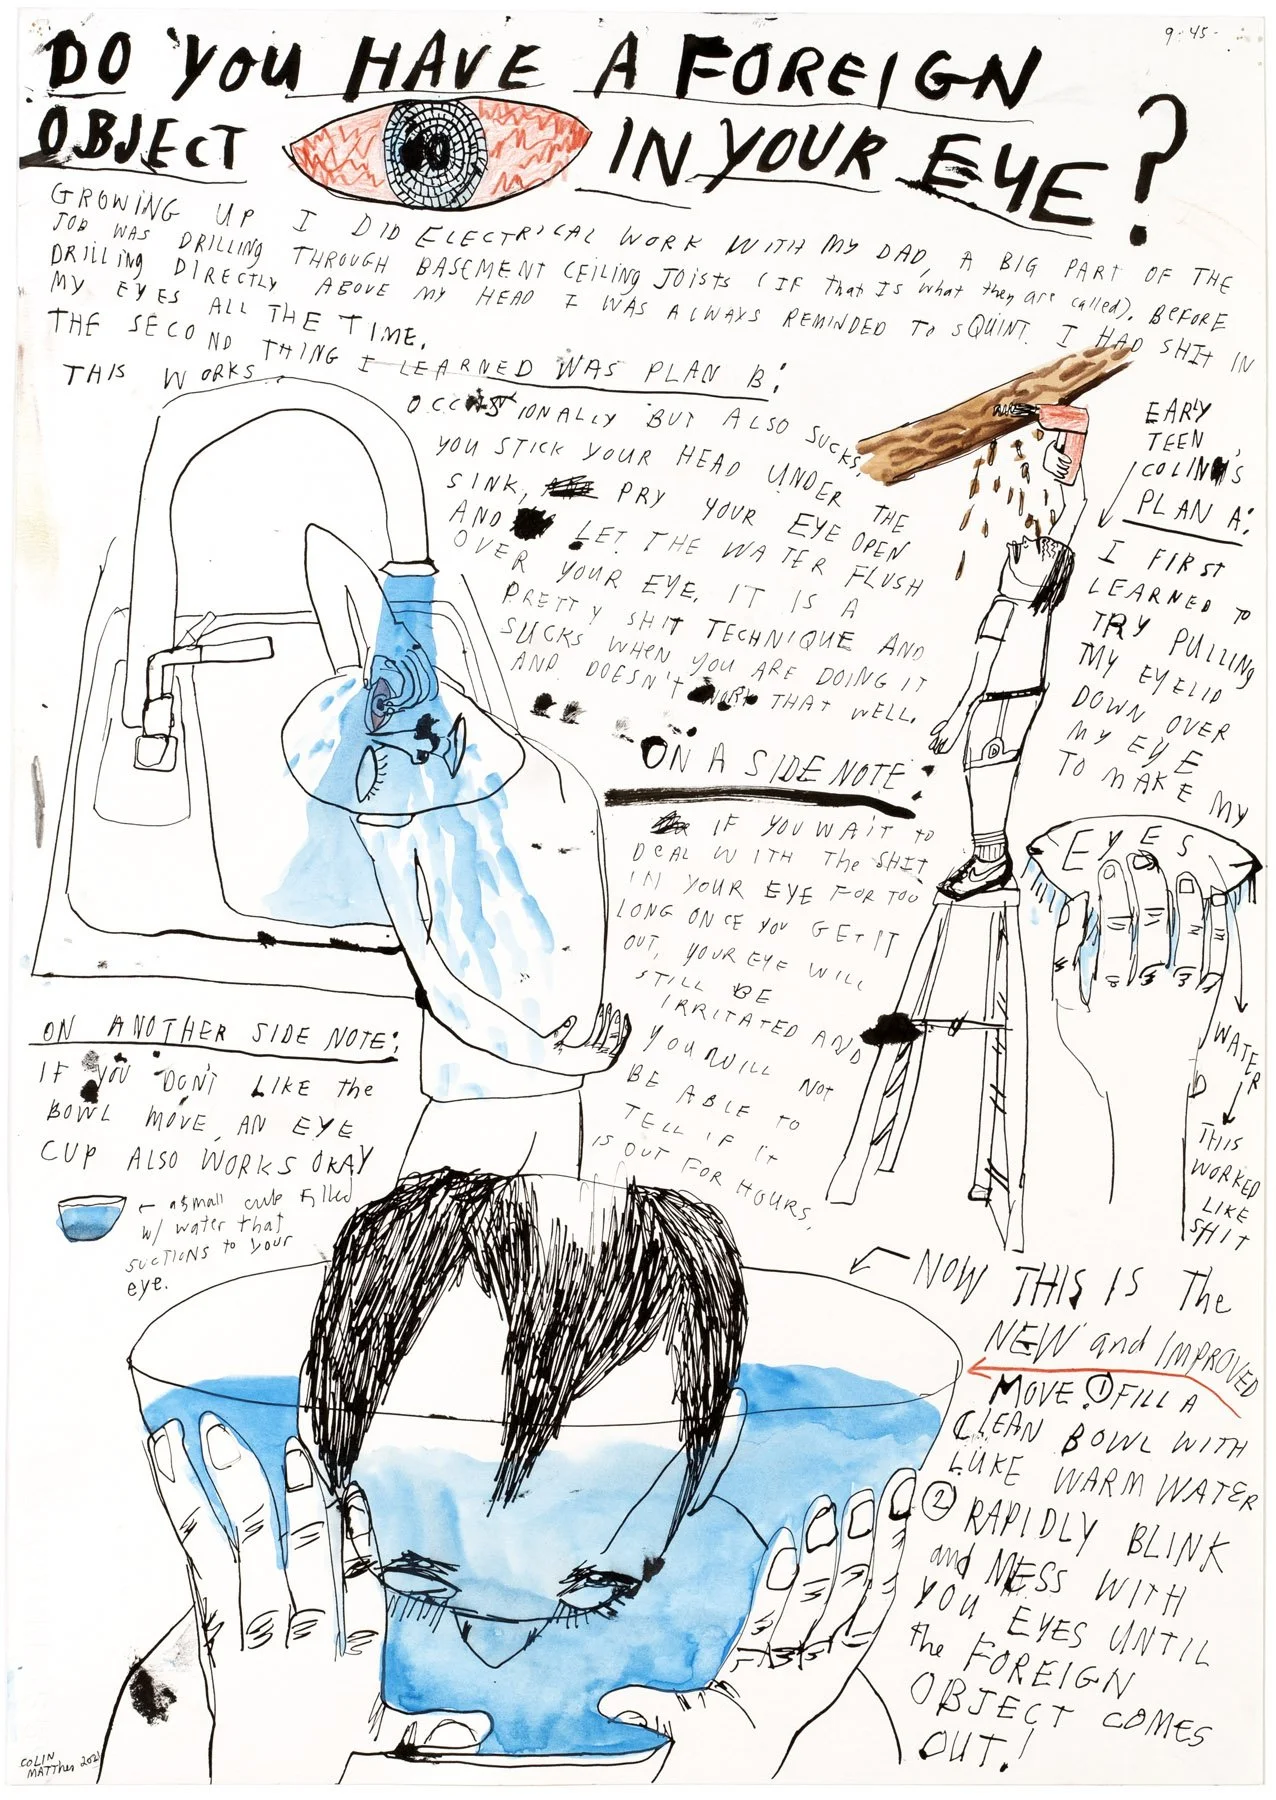 9-45-
DO YOU HAVE A FOREIGN
OBJECT IN YOUR EYE?
GROWING UP I DID ELECTRICAL WORK WITH MY DAD, A BIG PART OF THE
JOB WAS DRILLING THROUGH BASEMENT CEILING JOISTS (IF that IS what they are called). BEFORE
DRILLING DIRECTLY ABOVE MY HEAD I WAS ALWAYS REMINDED TO SQUINT. I HAD SHIT IN
MY EYES ALL THE TIME.
THE SECOND THING I LEARNED WAS PLAN B:
THIS WORKS
OCCASIONALLY BUT ALSO SUCKS.
YOU STICK YOUR HEAD UNDER THE
SINK, PRY YOUR EYE OPEN
AND LET THE WATER FLUSH
OVER YOUR EYE. IT IS A
PRETTY SHIT TECHNIQUE AND
SUCKS WHEN YOU ARE DOING IT
AND DOESN'T WORK THAT WELL.
EARLY
TEEN
COLIN'S
PLAN A:
I FIRST
LEARNED TO
TRY PULLING
MY EYELID
DOWN OVER
MY EYE
TO MAKE MY
EYES
WATER
THIS
WORKED
LIKE
SHIT
ON A SIDE NOTE:
IF YOU WAIT to
DEAL WITH the SHIT
IN YOUR EYE FOR TOO
LONG ONCE YOU GET IT
OUT, YOUR EYE WILL
STILL BE
IRRITATED AND
YOU WILL NOT
BE ABLE TO
TELL IF IT
IS OUT FOR HOURS.
ON ANOTHER SIDE NOTE:
IF YOU DON'T LIKE the
BOWL MOVE, AN EYE
CUP ALSO WORKS OKAY
← a small cup filled
w/ water that
suctions to your
eye.
NOW THIS IS The
NEW and IMPROVED
MOVE ① FILL A
CLEAN BOWL WITH
LUKE WARM WATER
② RAPIDLY BLINK
and MESS WITH
YOU EYES UNTIL
the FOREIGN
OBJECT COMES
OUT!
COLIN
MATThes 2021